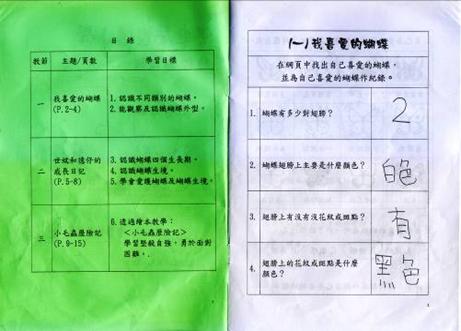 目 錄
教節 主題/頁數 學習目標
一 我喜愛的蝴蝶 (P.2-4)
1. 認識不同類別的蝴蝶。
2. 能觀察及認識蝴蝶外型。
二
成長日記 (P.5-8)
3. 認識蝴蝶四個生長期。
4. 認識蝴蝶生境。
5. 學會愛護蝴蝶及蝴蝶生境。
三 小毛蟲歷險記 (P.9-15)
6. 透過繪本教學：
<小毛蟲歷險記>
學習堅毅自強，勇於面對
困難。
(一)我喜愛的蝴蝶
在網頁中找出自己喜愛的蝴蝶，
並為自己喜愛的蝴蝶作紀錄。
1. 蝴蝶有多少對翅膀？ 2
2. 蝴蝶翅膀上主要是什麼顏色？ 白色
3. 翅膀上有沒有花紋或斑點？ 有
4. 翅膀上的花紋或斑點是什麼
顏色？ 黑色